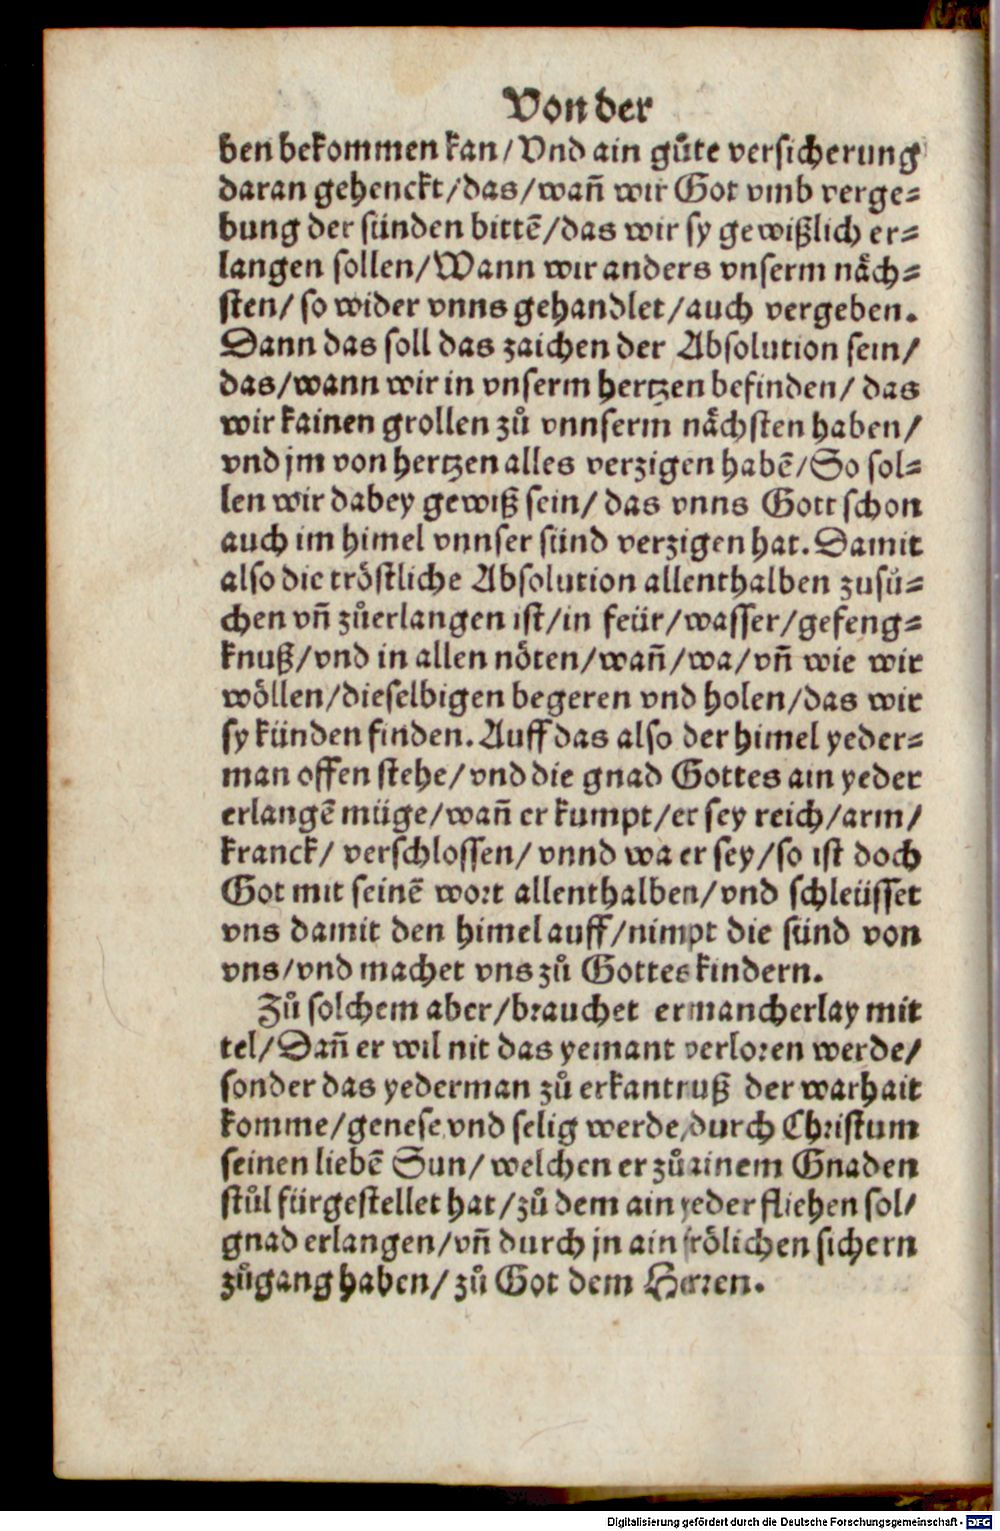 Von der
ben bekommen kan/Vnd ain gůte versicherung
daran gehenckt/das/wañ wir Got vmb verge⸗
bung der sünden bittē/das wir sy gewißlich er⸗
langen sollen/Wann wir anders vnserm nåch⸗
sten/ so wider vnns gehandlet/auch vergeben.
Dann das soll das zaichen der Absolution sein/
das/wann wir in vnserm hertzen befinden/ das
wir kainen grollen zů vnnserm nåchsten haben/
vnd jm von hertzen alles verzigen habē/So sol⸗
len wir dabey gewiß sein/ das vnns Gott schon
auch im himel vnnser sünd verzigen hat. Damit
also die tröstliche Absolution allenthalben zusů⸗
chen vñ zůerlangen ist/in feür/wasser/gefeng⸗
knuß/vnd in allen nöten/wañ/wa/vñ wie wir
wöllen/dieselbigen begeren vnd holen/das wir
sy künden finden. Auff das also der himel yeder⸗
man offen stehe/vnd die gnad Gottes ain yeder
erlangē müge/wañ er kumpt/er sey reich/arm/
kranck/ verschlossen/ vnnd wa er sey/so ist doch
Got mit seinē wort allenthalben/vnd schleüsset
vns damit den himel auff/nimpt die sünd von
vns/vnd machet vns zů Gottes kindern.
Zů solchem aber/brauchet er mancherlay mit
tel/Dañ er wil nit das yemant verloren werde/
sonder das yederman zů erkantnuß der warhait
komme/genese vnd selig werde/durch Christum
seinen liebē Sun/ welchen er zů ainem Gnaden
stůl fürgestellet hat/zů dem ain yeder fliehen sol/
gnad erlangen/vñ durch jn ain frölichen sichern
zůgang haben/ zů Got dem Herren.
Digitalisierung gefördert durch die Deutsche Forschungsgemeinschaft - DFG